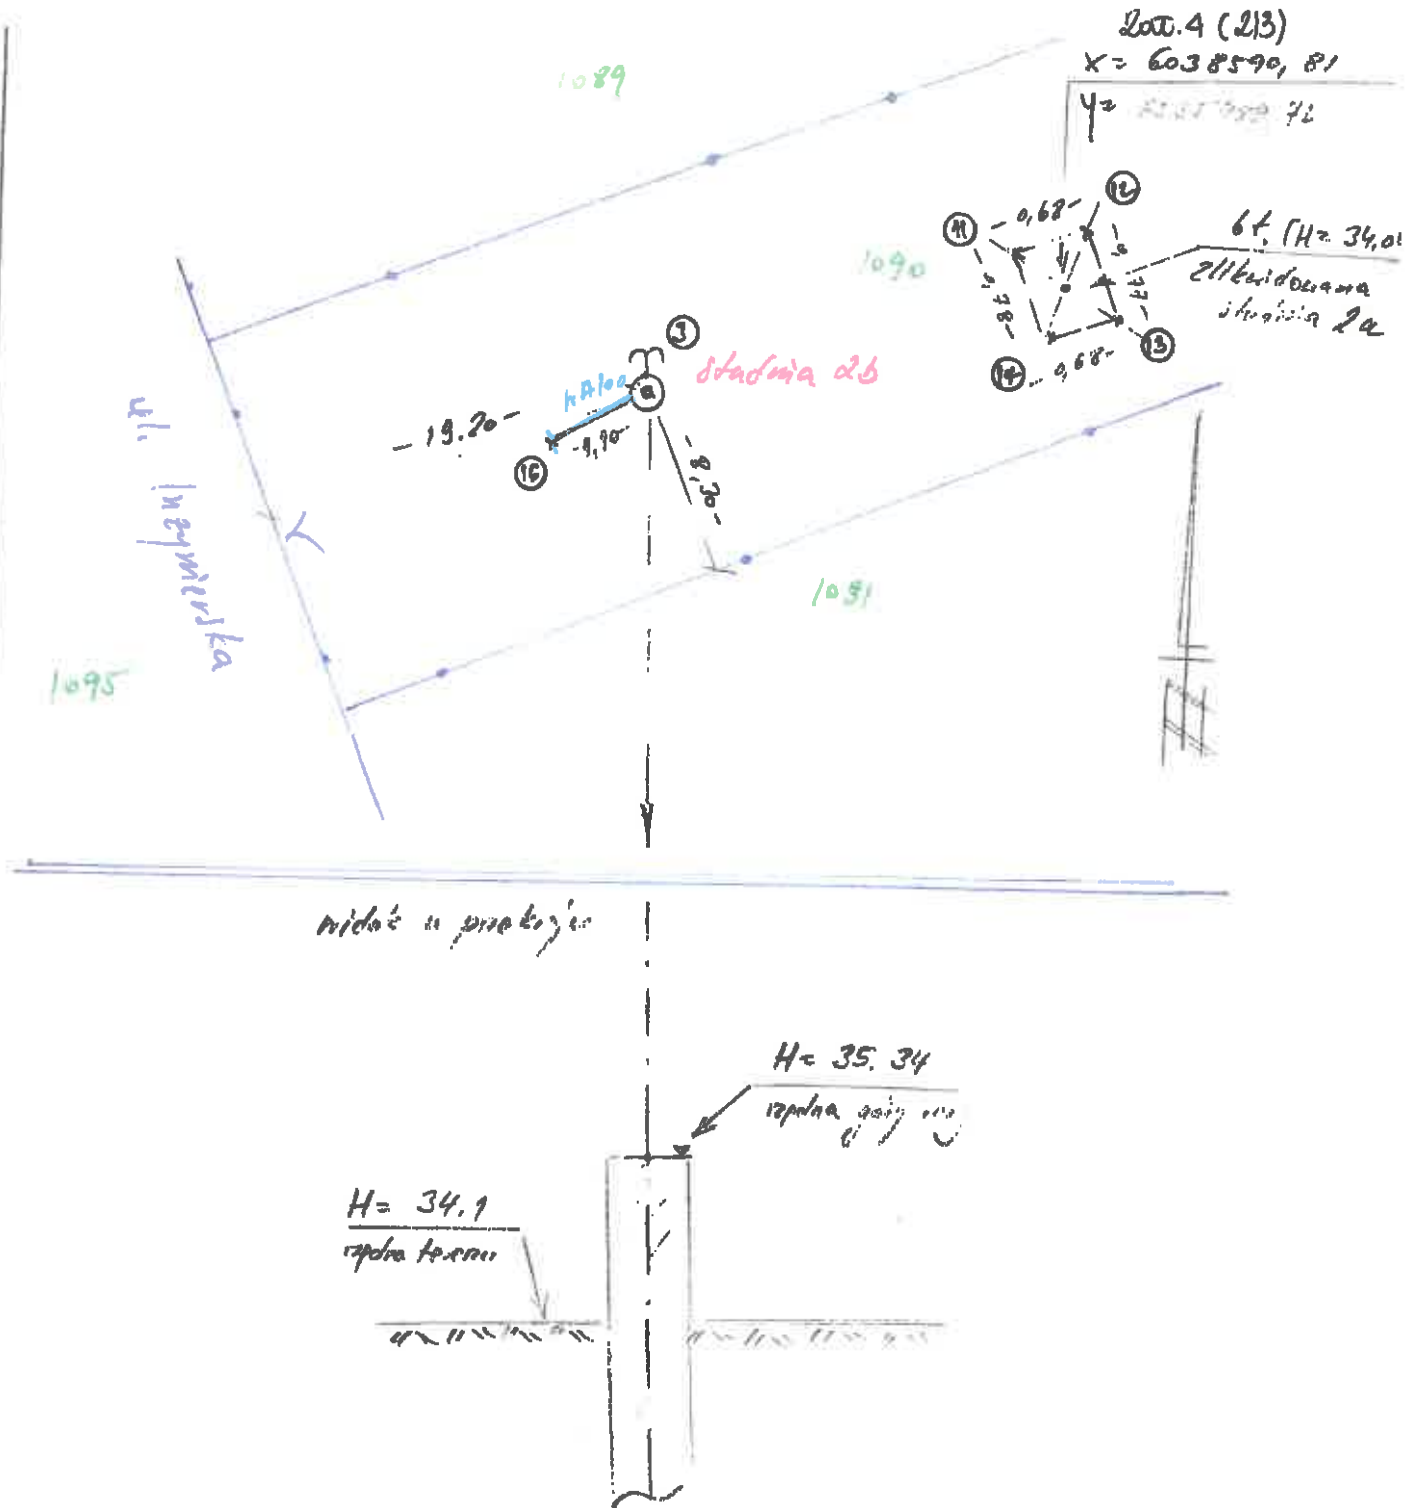 Zał. 4 (2/3)
X= 6038590,81
Y= 72
1089
12
11
- 0,68 -
- 0,77 -
- 0,78 -
bt. (H= 34,0
zlikwidowana
studnia 2a
1090
13
14
- 0,68 -
3
studnia 2b
- 19.20 -
15
- 8,30 -
ul. Inżynierska
1091
1095
widok w przekroju
H= 35.34
rzędna góry
H= 34.1
rzędna terenu